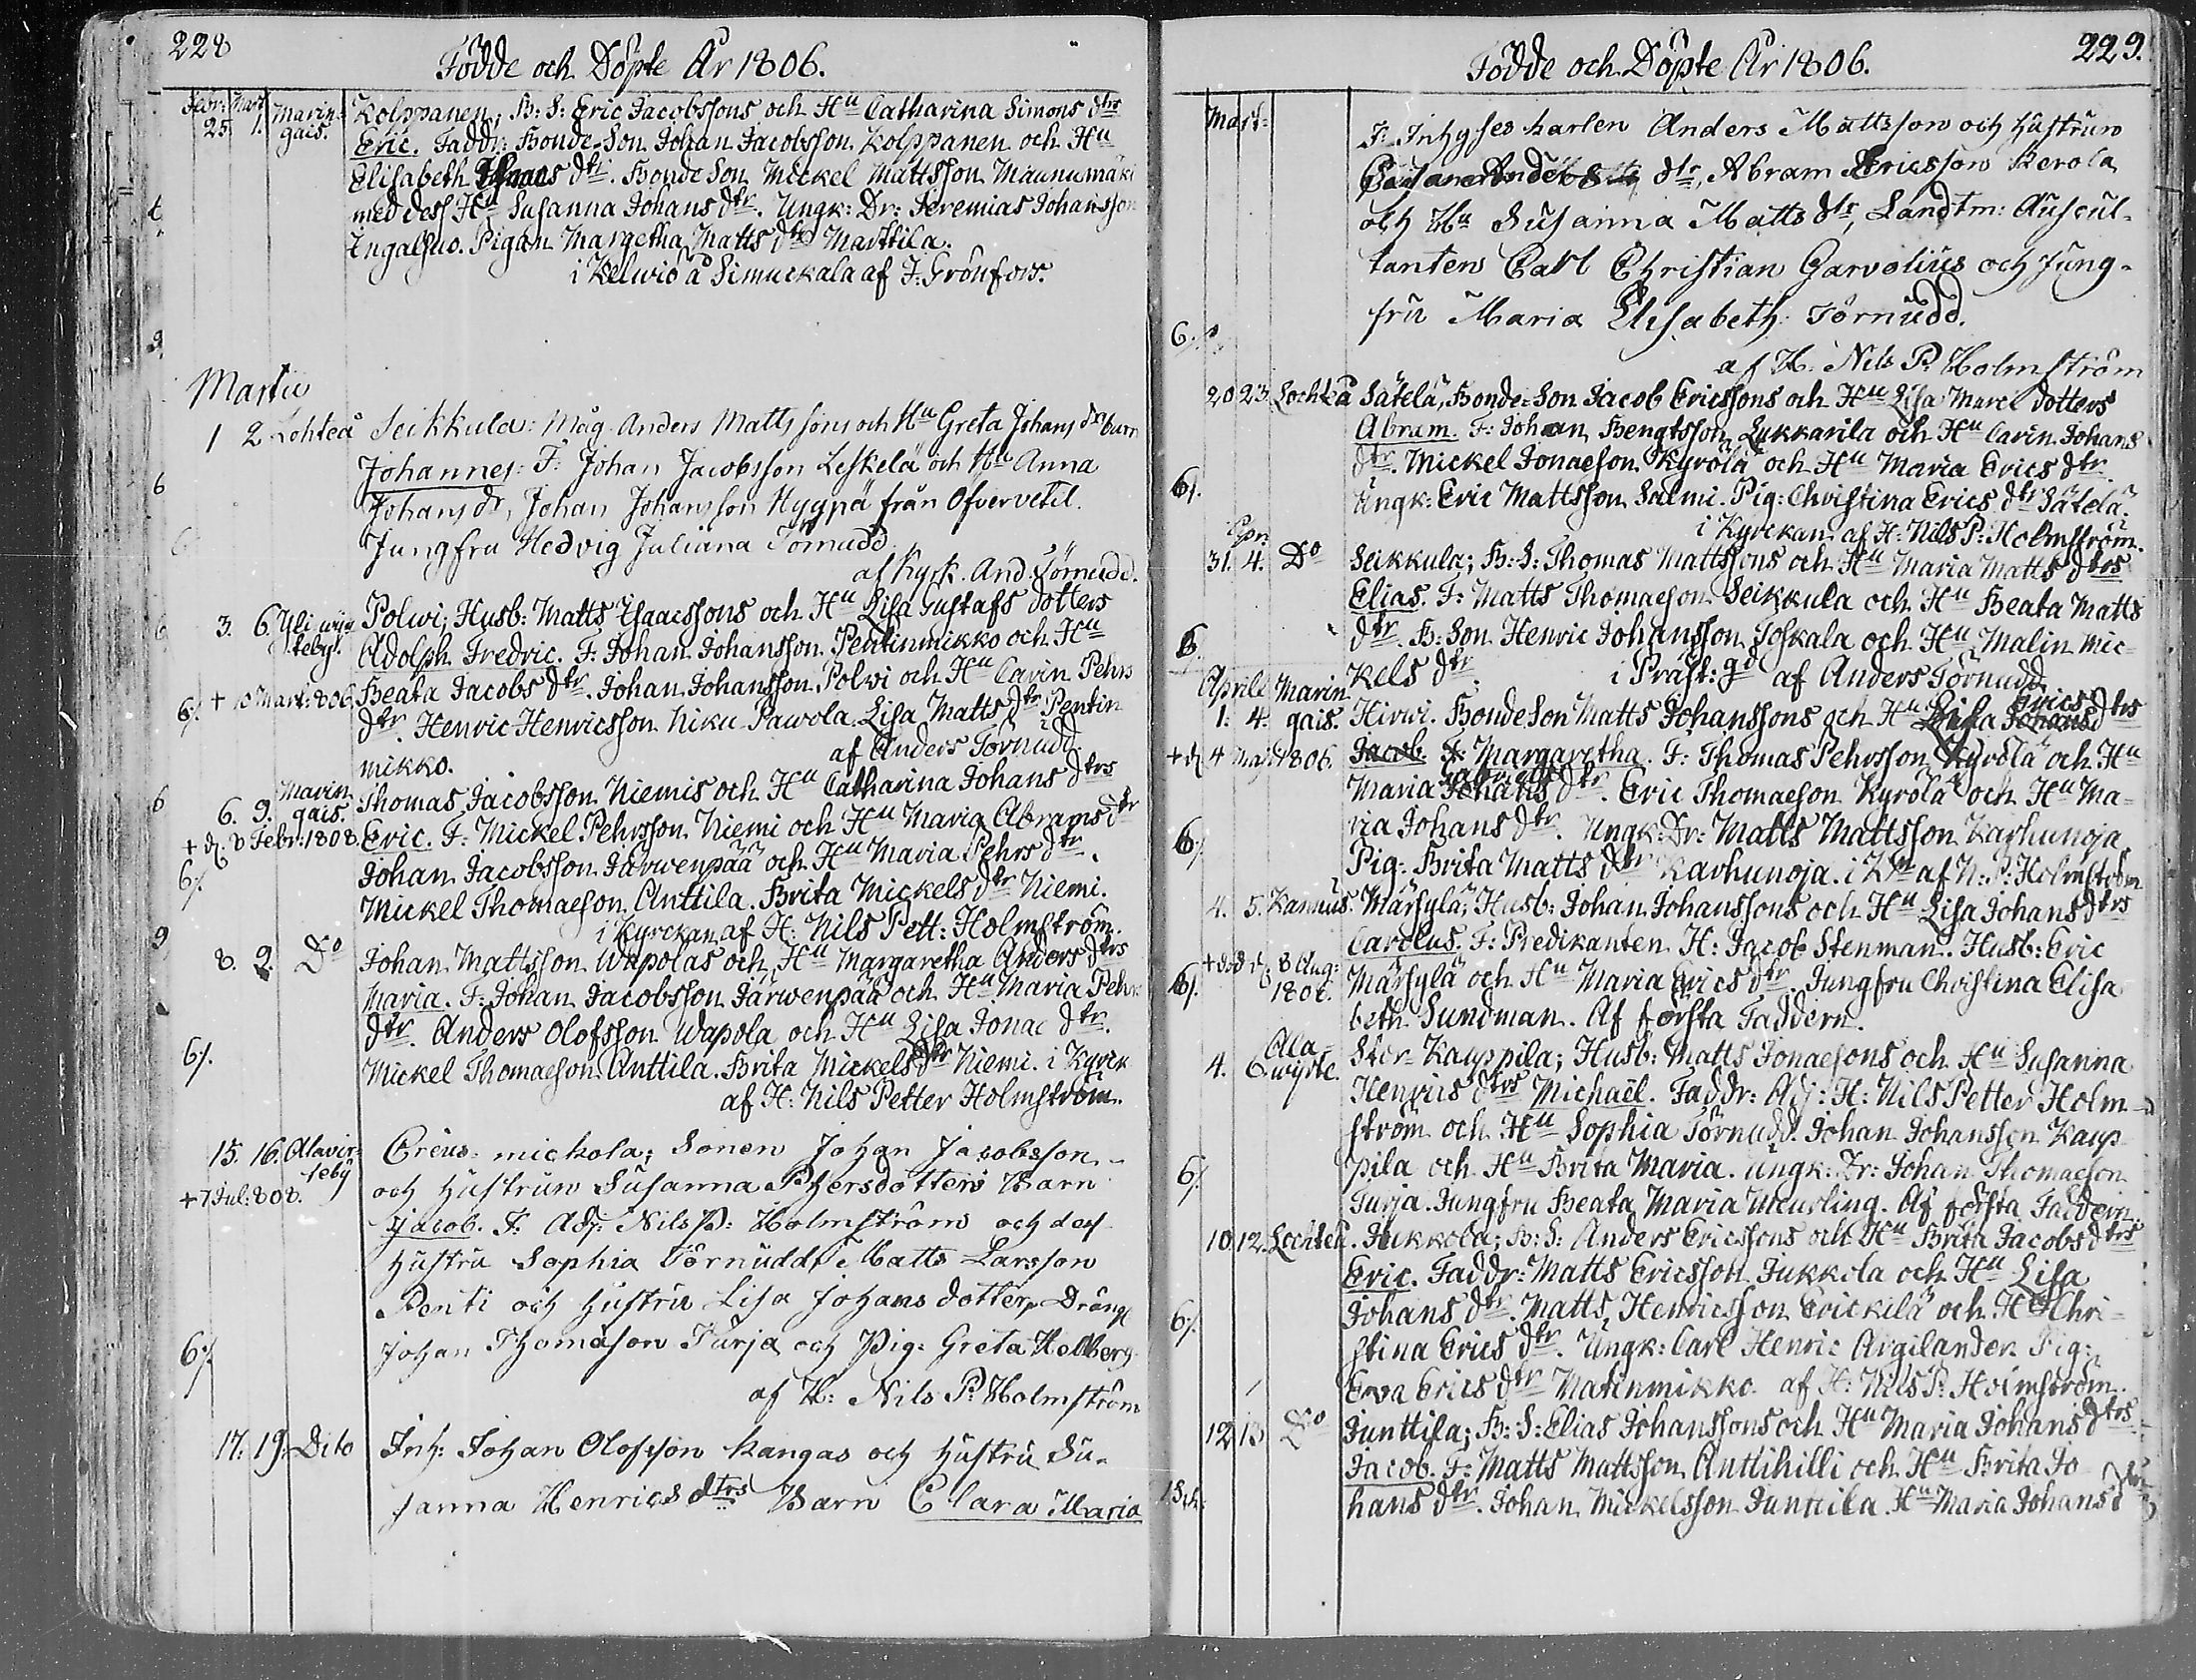 228
Födde och Döpte År 1806.
Febr: Mart
25. 1. Marin-
gais.
Kolppanen, B: S: Eric Jacobssons och Hu Catharina Simons dtrs
Eric. Faddr: Bonde-Son Johan Jacobsson Kolppanen och Hu
Elisabeth dtr. Bonde Son Mickel Mattsson Maunumäki
med dess Hu Susanna Johans dtr. Ungk: Dr: Jeremias Johansson
Ingalsuo. Pigan Margetha Matts dtr Marttila.
i Kelwiö å Simuckala af J: Grönfors.
Martii
1 2 Lohteå Seikkula: Måg Anders Mattssons och Hu Greta Johans dr barn
Johannes: F: Johan Jacobsson Leskelä och Hu Anna
Johans dr, Johan Johansson Hyypä från Öfvervetil.
Jungfru Hedvig Juliana Törnudd
af Kyrk. And. Törnudd.
3. 6. Yli wijr
teby.
Polwi; Husb: Matts Isaacssons och Hu Lisa Gustafs dotters
Adolph Fredric. F: Johan Johansson Pentinmikko och Hu
6/. + 10 Mart: 806. Beata Jacobs dtr. Johan Johansson Polwi och Hu Carin Pehrs
dtr. Henric Henricsson Niku Pawola. Lisa Matts dtr Pentin
mikko. af Anders Törnudd.
6. 9. Marin
gais. Thomas Jacobsson Niemis och Hu Catharina Johans dtrs
+ d. 8 Febr: 1808. Eric. F: Mickel Pehrsson Niemi och Hu Maria Abrams dtr
6/. Johan Jacobsson Järwenpää och Hu Maria Pehrs dtr.
Mickel Thomaeson Anttila. Brita Mickels dtr Niemi.
i Kyrckan af H: Nils Pett: Holmström.
8. 9. Do Johan Mattsson Wapolas och Hu Margaretha Anders dtrs
Maria. F: Johan Jacobsson Järwenpää och Hu Maria Pehrs
dtr. Anders Olofsson Wapola och Hu Lisa Jonae dtr.
6/. Mickel Thomaeson Anttila. Brita Mickels dtr Niemi. i Kyrck
af H: Nils Petter Holmström.
15. 16. Alavir-
teby
mickola; Sonen Johan Jacobsson
+ 7 Jul: 808. och hustrun Susanna Phersdotters Barn
Jacob. F: Adj: Nils P: Holmström och dess
hustru Sophia Törnudd, Matts Larsson
Penti och hustru Lisa Johans dotter, Dräng
6/. Johan Thomason Turja och Pig: Greta Hellberg.
af H: Nils P: Holmström
17. 19. Dito Inh: Johan Olofsson Kangas och hustru Su-
sanna Henrics dtrs Barn Clara Maria
229.
Födde och Döpte År 1806.
Mart:
F: Inhyses karlen Anders Mattsson och hustrun
dtr, Abram Ericsson Kerola
och Hu Susanna Matts dtr, Landtm: Auscul-
tanten Carl Christian Garvolius och Jung-
fru Maria Elisabeth Törnudd.
6.
af H: Nils P: Holmström
20 23 Lochteå Sätelä, Bonde-Son Jacob Ericssons och Hu Lisa Marci dotters
Abram. F: Johan Bengtsson Lykkarila och Hu Carin Johans
dtr. Mickel Jonaeson Kyrölä och Hu Maria Erics dtr.
6/. Ungk: Eric Mattsson Salmi. Pig: Christina Erics dtr Sätelä.
i Kyrckan af H: Nils P: Holmström.
Apr.
31. 4. Do Seikkula; B: S: Thomas Mattssons och Hu Maria Matts dtrs
Elias. F: Matts Thomaeson Seikkula och Hu Beata Matts
dtr. B: Son Henric Johansson Joskala och Hu Malin Mic-
6. kels dtr. i Präst: gd af Anders Törnudd
Aprill Marin
1. 4. gais. Hirwi. Bonde Son Matts Johanssons och Hu Lisa Johans Erics dtrs
+ d. 4 Maji 1806. Jacob F: Margaretha. F: Thomas Pehrsson Kyrölä och Hu
Maria Johans Gabriels dtr. Eric Thomaeson Kyrölä och Hu Ma-
6/. ria Johans dtr. Ungk: Dr: Matts Mattsson Karhunoja,
Pig: Brita Matts dtr Karhunoja. i K:n af N: P: Holmström
4. 5. Kannus. Märsylä; Husb: Johan Johanssons och Hu Lisa Johans dtrs
Carolus. F: Predikanten H: Jacob Stenman. Husb: Eric
+ död d. 8 Aug:
1806.
6/. Märsylä och Hu Maria Erics dtr. Jungfru Christina Elisa
beth Sundman. Af första Faddern.
Ala-
4. 6. wijrte. Stor-Kauppila; Husb: Matts Jonaesons och Hu Susanna
Henrics dtrs Michaël. Faddr: Adj: H: Nils Petter Holm-
ström och Hu Sophia Törnudd. Johan Johansson Kaup
6/. pila och Hu Brita Maria. Ungk: Dr: Johan Thomaeson
Turja. Jungfru Beata Maria Meurling. Af första Faddern.
10. 12. Lochteå. Jukkola; B: S: Anders Ericssons och Hu Brita Jacobs dtrs
Eric. Faddr: Matts Ericsson Jukkola och Hu Lisa
6/. Johans dtr. Matts Henricsson Erickilä och Hu Chri-
stina Erics dtr. Ungk: Carl Henric Argilander. Pig:
Erics dtr Matinmikko. af H: Nils P: Holmström.
12 13 Do Junttila; B: S: Elias Johanssons och Hu Maria Johans dtrs
Jacob. F: Matts Mattsson Anttihilli och Hu Brita Jo
hans dtr. Johan Mickelsson Junttila. Hu Maria Johans dtr